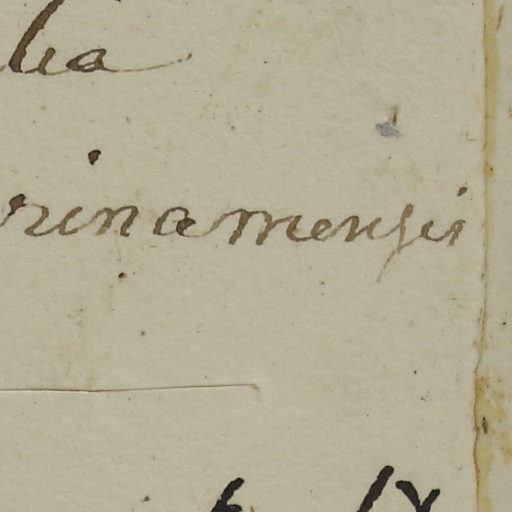 lia
rinamensis